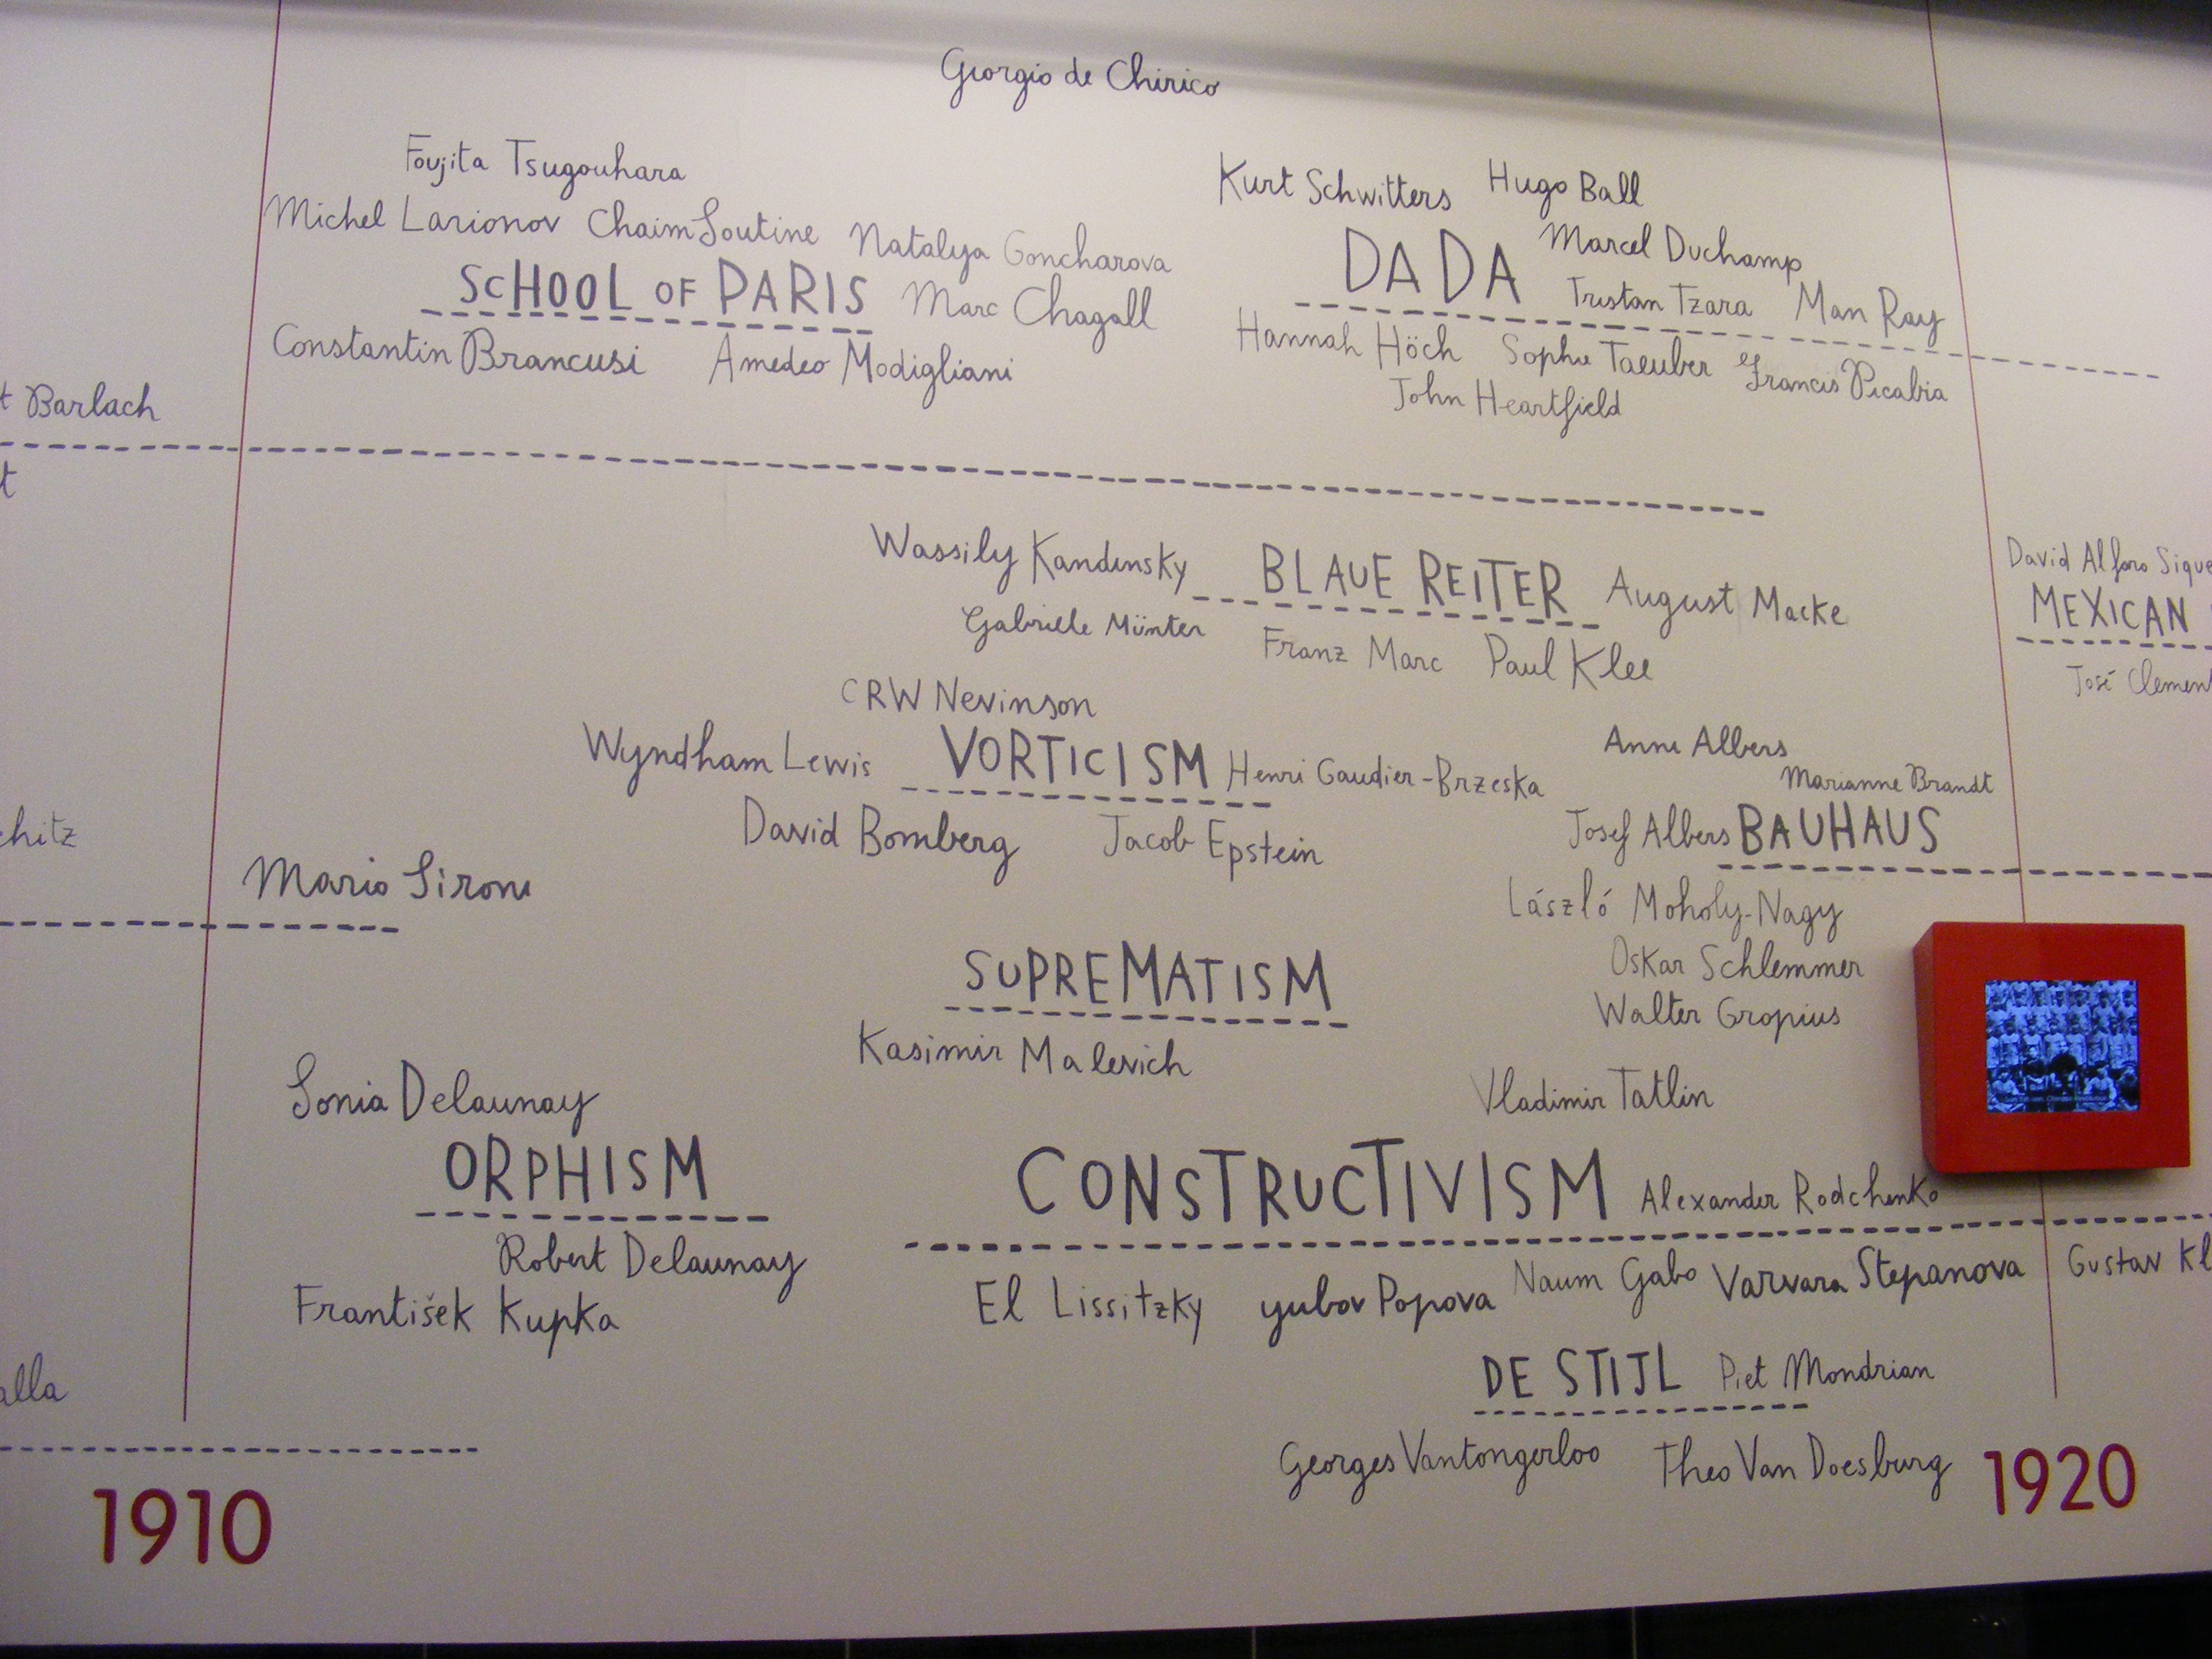 Giorgio de Chirico
Foujita Tsugouhara
Michel Larionov Chaim Soutine Natalya Goncharova
SCHOOL OF PARIS Marc Chagall
Constantin Brancusi Amedeo Modigliani
Kurt Schwitters Hugo Ball
Marcel Duchamp
DADA Tristan Tzara Man Ray
Hannah Höch Sophie Taeuber Francis Picabia
John Heartfield
Barlach
Wassily Kandinsky BLAUE REITER August Macke
Gabrielle Münter Franz Marc Paul Klee
David Alfaro Sique
MEXICAN
José Clement
CRW Nevinson
Wyndham Lewis VORTICISM Henri Gaudier-Brzeska
David Bomberg Jacob Epstein
Anni Albers
Marianne Brandt
Josef Albers BAUHAUS
László Moholy-Nagy
Oskar Schlemmer
Walter Gropius
chitz
Mario Sironi
SUPREMATISM
Kasimir Malevich
Sonia Delaunay
ORPHISM
Robert Delaunay
František Kupka
Vladimir Tatlin
CONSTRUCTIVISM Alexander Rodchenko
El Lissitzky yubov Popova Naum Gabo Varvara Stepanova Gustav Kl
DE STIJL Piet Mondrian
Georges Vantongerloo Theo Van Doesburg
alla
1910 1920